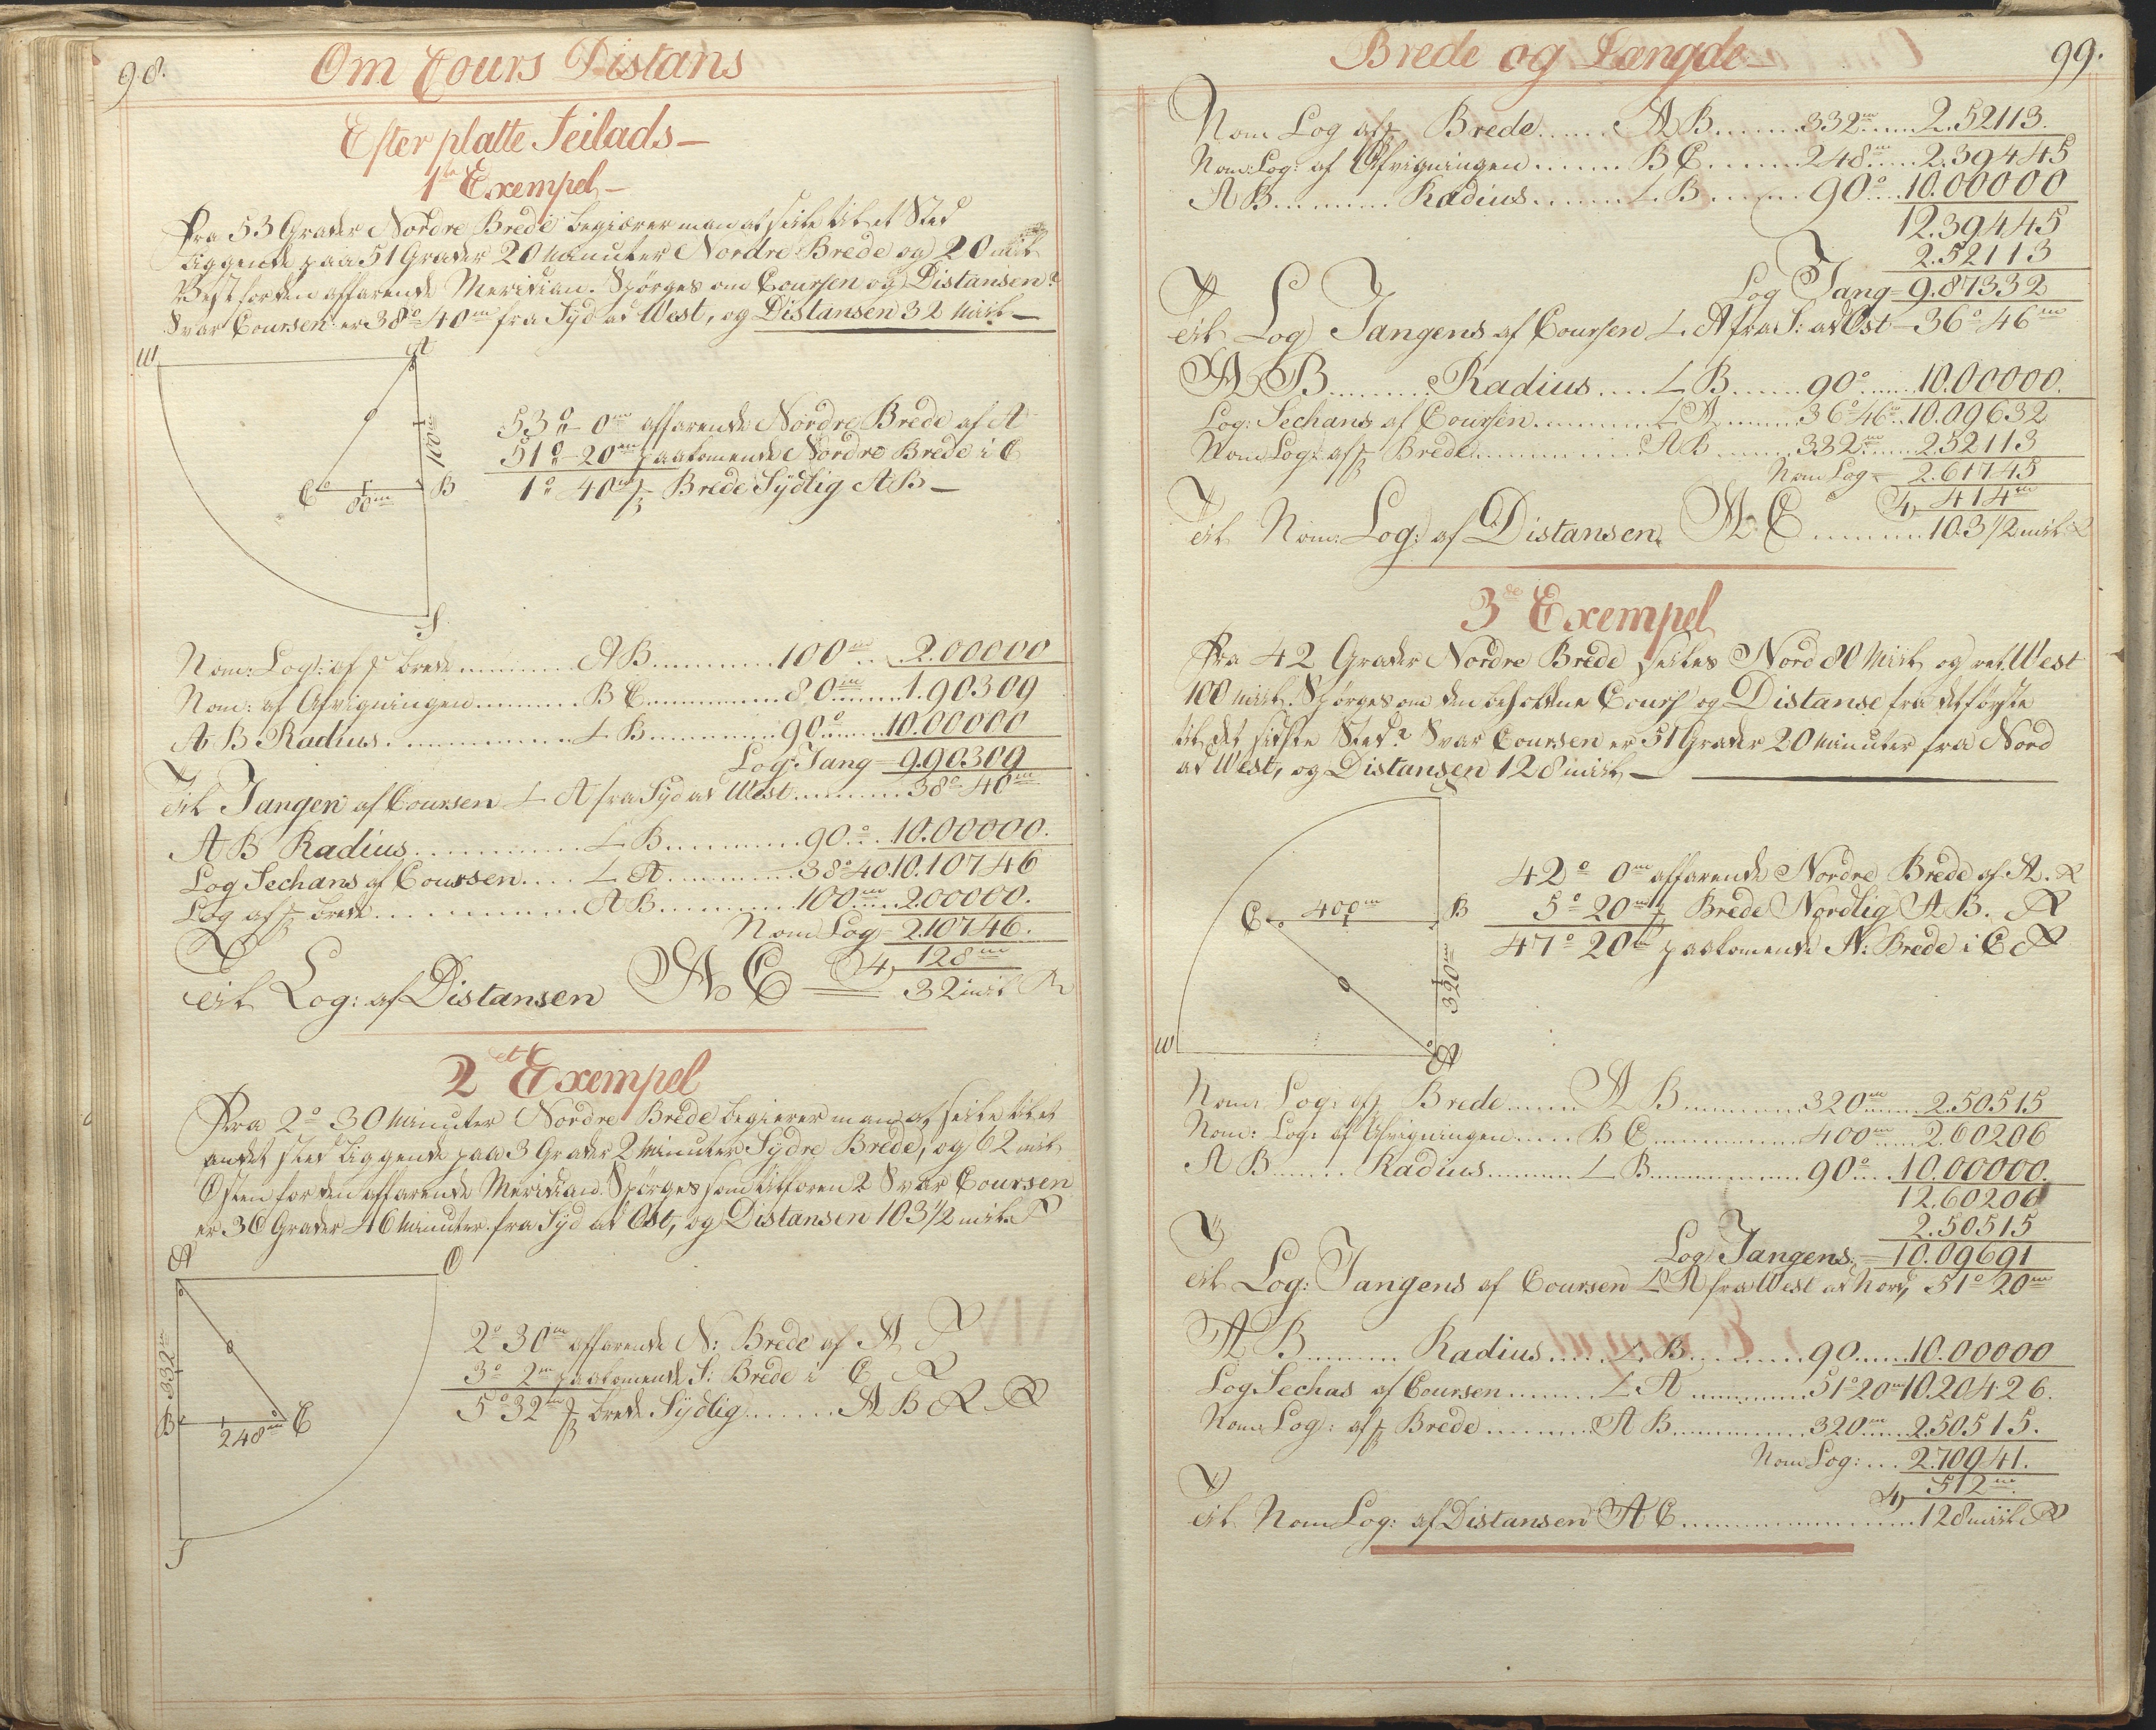 98.
Om Cours Distans
Efter platte Seilads—
1te Exempel—
Fra 53 Grader Nordre Brede begiærer man at seile til et Sted
liggende paa 51 Grader 20 Minuter Nordre Brede og 20 Mil
Vest for den affarende Meridian. Spörges om Coursen og Distansen?
Svar Coursen er 38° 40m fra Syd ad West, og Distansen 32 Mil—
W
A
100m
C
80m
B
S
53° 0m affarende Nordre Brede af A
51° 20m paakomende Nordre Brede i C
1° 40m f Brede Sydlig AB—
Nom: Log: af f brede ........ AB ........ 100m .. 2.00000
Nom: af Afvigningen ........ BC ........ 80m ..... 1.90309
AB Radius ........ L B ........ 90° .... 10.00000
Log: Tang = 9.90309
til Tangen af Coursen L A fra Syd ad West ........ 38° 40m
AB Radius ........ L B ........ 90° .. 10.00000.
Log Sechans af Coursen .... L A ........ 38° 40. 10.10746
Log af f brede ........ AB ........ 100m .... 2.00000.
Nom Log = 2.10746.
4) 128m
til Log: af Distansen AC = 32 mil
2et Exempel
Fra 2° 30 Minuter Nordre Brede begierer man at seile til et
andet sted liggende paa 3 Grader 2 Minuter Sydre Brede, og 62 mil
Østen for den affarende Meridian. Spörges som tilforen? Svar Coursen
er 36 Grader 46 Minuter fra Syd ad Ost, og Distansen 103 1/2 mil
A
O
332m
B
248m
C
S
2° 30m affarende N: Brede af A
3° 2m paakomende S: Brede i C
5° 32m f brede Sydlig ........ AB
Brede og Længde—
99.
Nom Log af f Brede ...... AB ........ 332m ..... 2.52113.
Nom: Log: af Afvigningen ....... BC ....... 248m .... 2.39445
AB ........ Radius ....... L B ...... 90° .... 10.00000
12.39445
2.52113
Log Tang = 9.87332
til Log Tangens af Coursen L A fra S: ad Ost — 36° 46m
AB ........ Radius .... L B ..... 90° ...... 10.00000.
Log: Sechans af Coursen .......... L A ....... 36° 46m . 10.09632
Nom Log: af f Brede ........ AB ...... 332m ..... 2.52113
Nom Log = 2.61745
4) 414m
til Nom: Log: af Distansen AC ........ 103 1/2 mil
3de Exempel
Fra 42 Grader Nordre Brede seiles Nord 80 Mil og ret West
100 mil. Spörges om den beholdne Cours og Distanse fra det förste
til det sidste Sted? Svar Coursen er 51 Grader 20 Minuter fra Nord
ad West, og Distansen 128 mil—
C
400m
B
320m
W
A
42° 0m affarende Nordre Brede af A.
5° 20m f Brede Nordlig AB.
47° 20m paakomende N: Brede i C
Nom: Log: af f Brede ...... AB ........ 320m ...... 2.50515
Nom: Log: af Afvigningen ...... BC ........ 400m .... 2.60206
AB ...... Radius ........ L B ........ 90° .... 10.00000.
12.60206
2.50515
Log Tangens = 10.09691
til Log: Tangens af Coursen L A fra West ad Nord, 51° 20m
AB ........ Radius ..... L B ........ 90 ...... 10.00000
Log Sechas af Coursen ....... L A ........ 51° 20m 10.20426.
Nom: Log: af f Brede ........ AB ........ 320m ..... 2.50515.
Nom Log: ... 2.70941.
4) 512m
til Nom Log: af Distansen AC ........ 128 mil